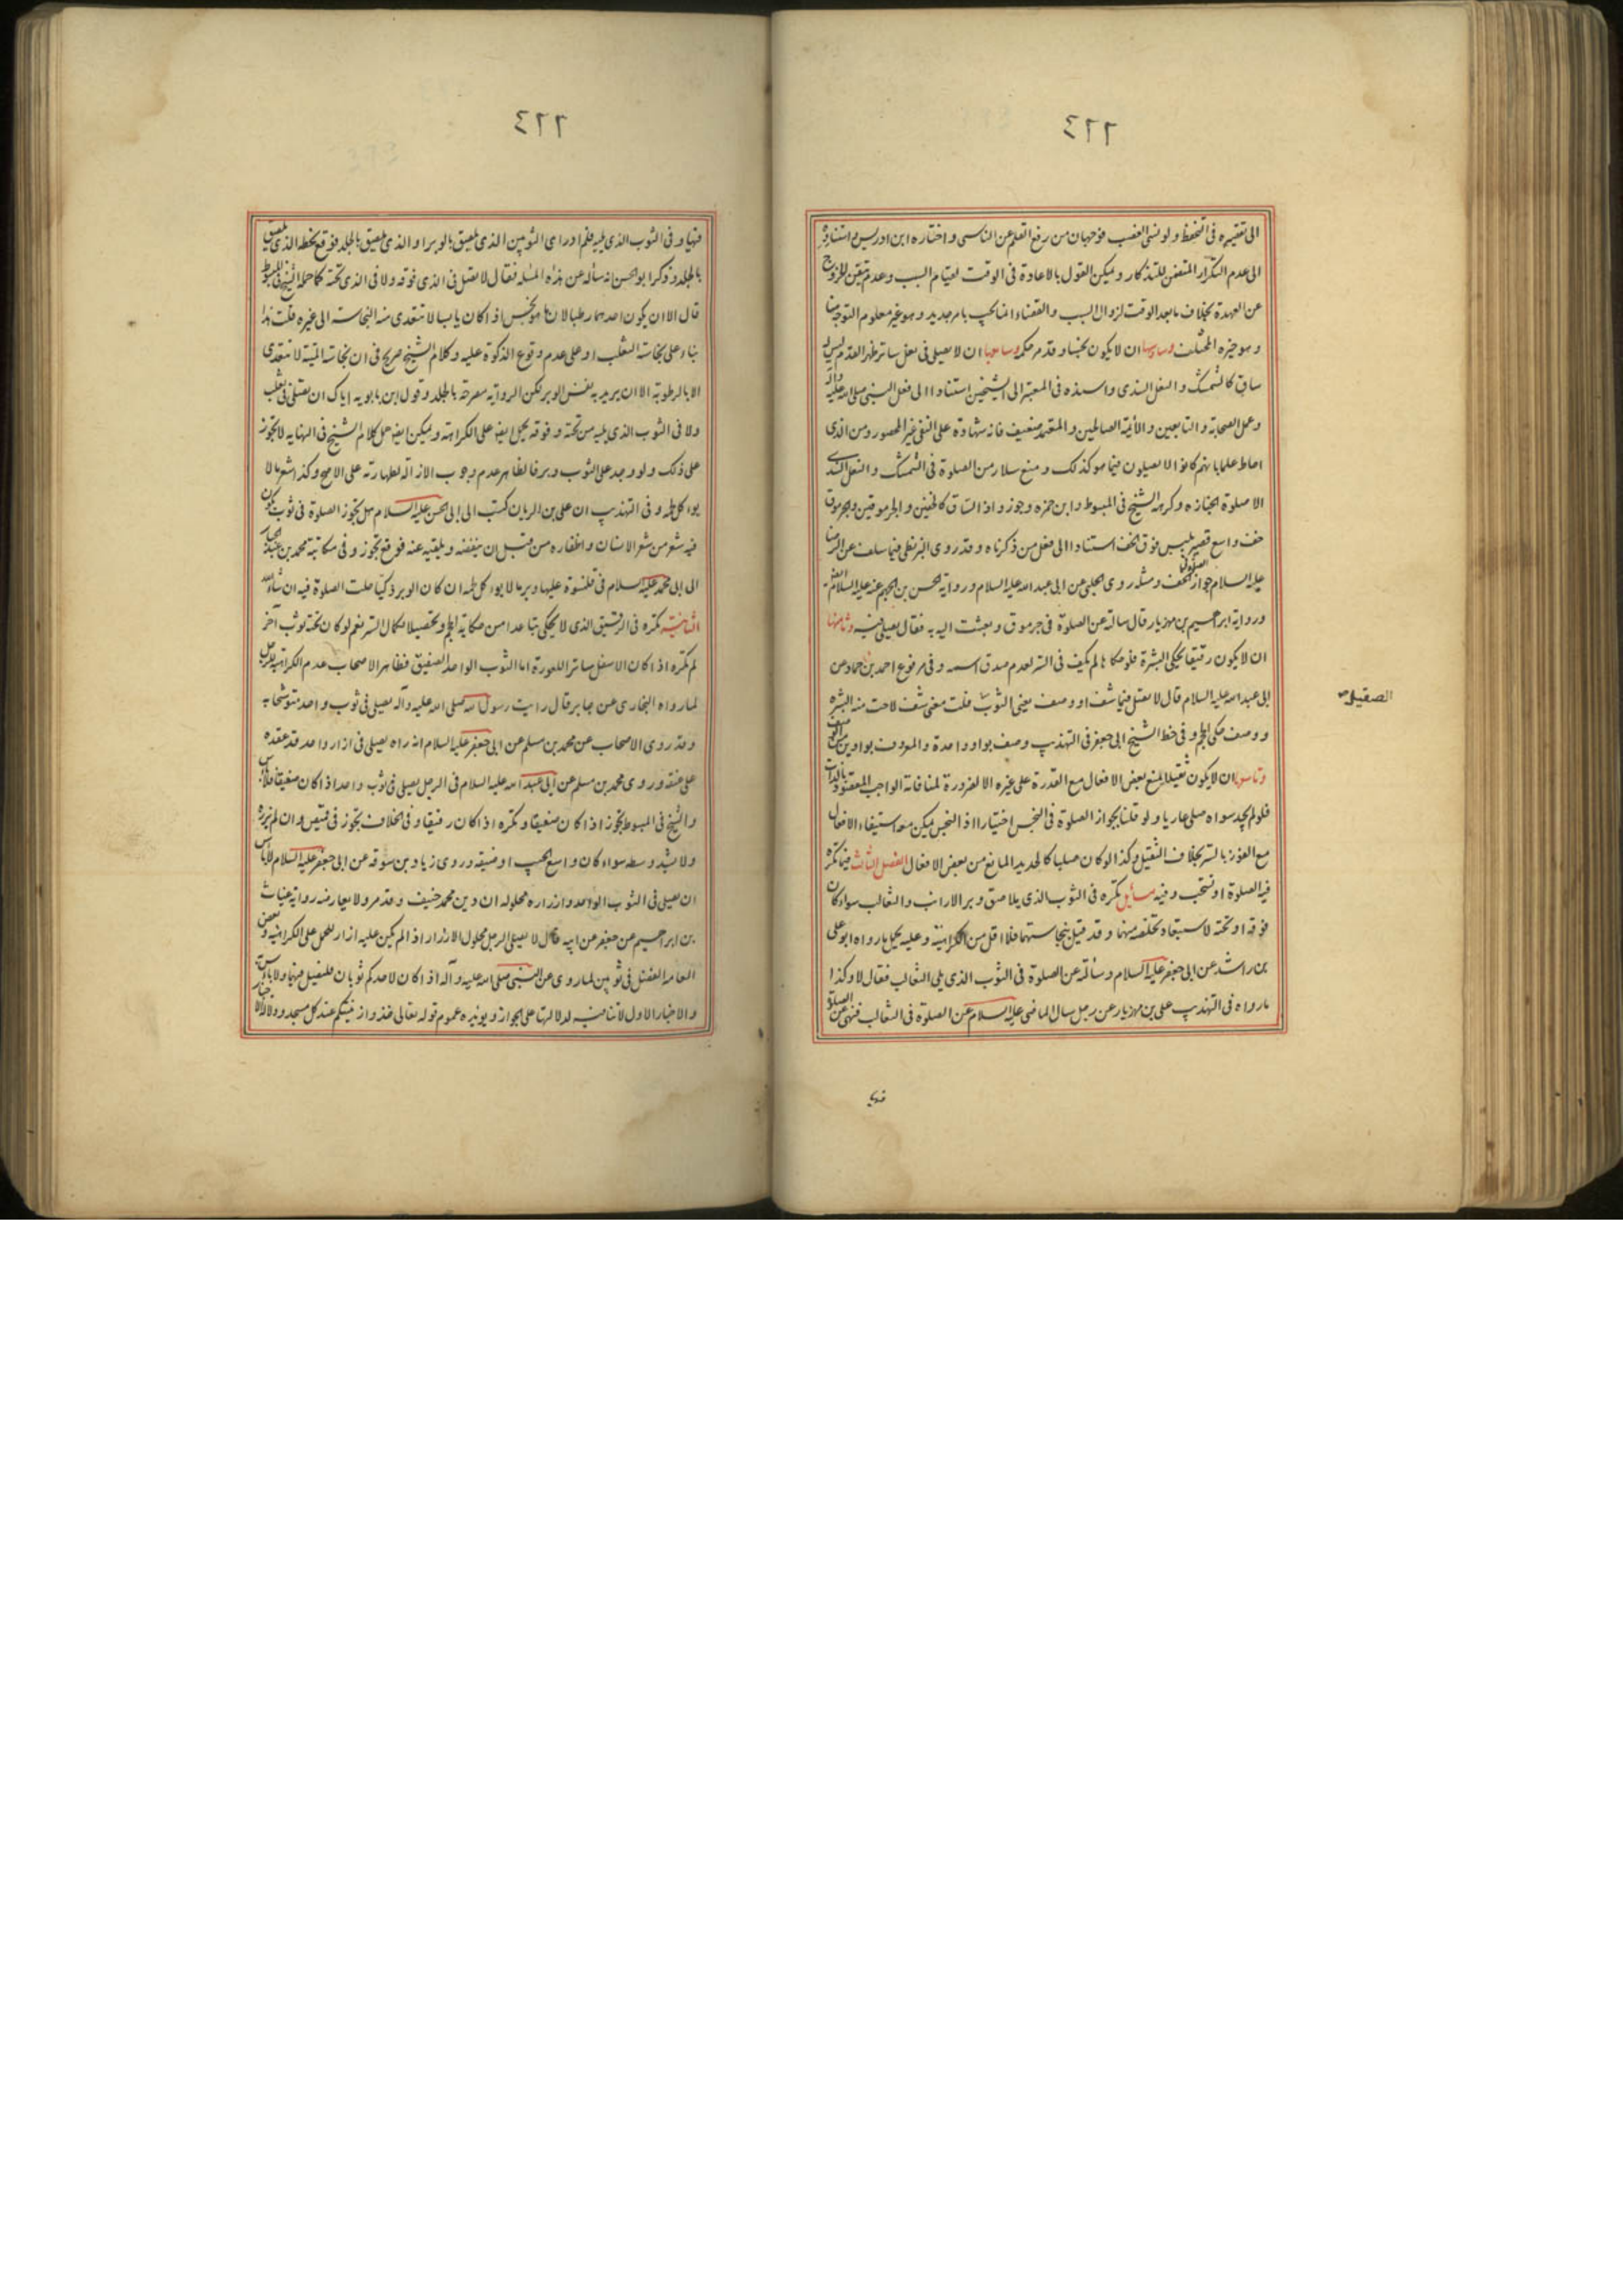 الى تقصيره فى التحفظ ولو نسى الغصب فوجهان من رفع القلم عن الناسى واختاره ابن ادريس واستناده
الى عدم التكرار المتضمن للتذكار ويمكن القول بالاعادة فى الوقت لقيام السبب وعدم تيقن الخروج
عن العهدة بخلاف ما بعد الوقت لزوال السبب والقضاء انما يجب بامر جديد وهو غير معلوم التوجه هنا
وهو خيره المختلف وسادسها ان لا يكون نجسا وقد مر حكمه وسابعها ان لا يصلى فى نعل ساتر ظهر القدم ليس له
ساق كالشمشك والنعل السندى واسنده فى المعتبر الى الشيخين استنادا الى فعل النبى صلى الله عليه وآله
وعمل الصحابة والتابعين والأئمة الصالحين والمعتمد ضعيف فانه شهادة على النفى غير المحصور ومن الذى
احاط علما بانهم كانوا لا يصلون فيما هو كذلك ومنع سلار من الصلوة فى الشمشك والنعل السندى
الا صلوة الجنازه وكرهه الشيخ فى المبسوط وابن حمزه وجوزوا ذا الساق كالخفين والجرموقين والجرموق
خف واسع قصير يلبس فوق الخف استنادا الى فعل من ذكرناه وقد روى البزنطى فيما سلف عن الرضا
عليه السلام جواز الصلوة فى الخف ومثله روى الحلبى عن ابى عبد الله عليه السلام ورواية الحسن بن الجهم عنه عليه السلام
ورواية ابرهيم بن مهزيار قال سالته عن الصلوة فى جرموق وبعثت اليه به فقال يصلى فيه وثامنها
ان لا يكون رقيقا يحكى البشرة فلو حكاها لم يكف فى الستر لعدم صدق اسمه وفى مرفوع احمد بن حماد عن
ابى عبد الله عليه السلام قال لا تصل فيما شف او وصف يعنى الثوب قلت معنى شف لاحت منه البشره
ووصف حكى الحجم وفى خط الشيخ ابى جعفر فى التهذيب وصف بواو واحدة والمعروف بواوين
وتاسعها ان لا يكون ثقيلا يمنع بعض الافعال مع القدرة على غيره الا لضرورة لمنافاته الواجب المقصود بالذات
فلو لم يجد سواه صلى عاريا ولو قلنا بجواز الصلوة فى النجس اختيارا اذ النجس يمكن معه استيفاء الافعال
مع الفوز بالستر بخلاف الثقيل وكذا لو كان صلبا كالحديد المانع من بعض الافعال الفصل الثالث فيما تكره
فيه الصلوة او تستحب وفيه مسائل تكره فى الثوب الذى يلاصق وبر الارانب والثعالب سواء كان
فوقه او تحته لاستبقاء تخلفه منهما وقد قيل بنجاستهما فلا اقل من الكراهية وعليه يحمل ما رواه ابو على
بن راشد عن ابى جعفر عليه السلام وسألته عن الصلوة فى الثوب الذى يلى الثعالب فقال لا وكذا
ما رواه فى التهذيب على بن مهزيار عن رجل سال الماضى عليه السلام عن الصلوة فى الثعالب فنهى عن الصلوة
الصقيل
فيها
فيها وفى الثوب الذى يليه فلم ادر اى الثوبين الذى يلصق بالوبر او الذى يلصق بالجلد فوقع بخطه الذى يلصق
بالجلد وذكر ابو الحسن انه سأله عن هذه المسئله فقال لا تصل فى الذى فوقه ولا فى الذى تحته كما حمله الشيخ فى المبسوط
قال الا ان يكون احدهما رطبا لان ما هو نجس اذا كان يابسا لا تتعدى منه النجاسه الى غيره قلت هذا
بناء على نجاسة الثعلب او على عدم وقوع الذكوة عليه وكلام الشيخ صريح فى ان نجاسة الميتة لا تتعدى
الا بالرطوبة الا ان يريد به نفس الوبر لكن الرواية مصرحة بالجلد وقول ابن بابويه اياك ان تصلى فى ثعلب
ولا فى الثوب الذى يليه من تحته وفوقه يحمل ايضا على الكراهة ويمكن ايضا حمل كلام الشيخ فى النهايه لا تجوز
على ذلك ولو وجد على الثوب وبر فالظاهر عدم وجوب الازالة لطهارته على الاصح وكذا شعر ما لا
يؤكل لحمه وفى التهذيب ان على بن الريان كتب الى ابى الحسن عليه السلام هل تجوز الصلوة فى ثوب يكون
فيه شعر من شعر الانسان واظفاره من قبل ان ينفضه ويلقيه عنه فوقع تجوز وفى مكاتبة محمد بن عبد الجبار
الى ابى محمد عليه السلام فى قلنسوة عليها وبر ما لا يؤكل لحمه ان كان الوبر ذكيا حلت الصلوة فيه ان شاء الله
الثانية تكره فى الرقيق الذى لا يحكى تباعدا من حكاية الحجم وتحصيلا لكمال الستر نعم لو كان تحته ثوب آخر
لم تكره اذا كان الاسفل ساتر اللعورة اما الثوب الواحد الصفيق فظاهر الاصحاب عدم الكراهيه للرجل
لما رواه البخارى عن جابر قال رايت رسول الله صلى الله عليه وآله يصلى فى ثوب واحد متوشحا به
وقد روى الاصحاب عن محمد بن مسلم عن ابى جعفر عليه السلام انه راه يصلى فى ازار واحد قد عقده
على عنقه وروى محمد بن مسلم عن ابى عبد الله عليه السلام فى الرجل يصلى فى ثوب واحد اذا كان صفيقا فلا باس
والشيخ فى المبسوط تجوز اذا كان صفيقا وتكره اذا كان رقيقا وفى الخلاف تجوز فى قميص وان لم يزره
ولا يشد وسطه سواء كان واسع الجيب او ضيقه وروى زياد بن سوقه عن ابى جعفر عليه السلام لا باس
ان يصلى فى الثوب الواحد وازراره محلوله ان دين محمد حنيف وقد مر ولا يعارضه رواية غياث
بن ابرهيم عن جعفر عن ابيه قال لا يصلى الرجل محلول الازرار اذا لم يكن عليه ازار للحمل على الكراهيه وبعض
العامه الفضل فى ثوبين لما روى عن النبى صلى الله عليه وآله اذا كان لاحدكم ثوبان فليصل فيهما ولا باس به
والاخبار الاول لا تنافيه لدلالتها على الجواز ويؤيده عموم قوله تعالى خذوا زينتكم عند كل مسجد